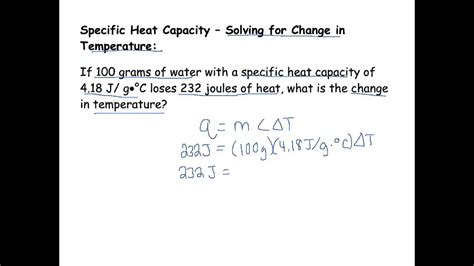 Specific Heat Capacity – Solving for Change in
Temperature:
If 100 grams of water with a specific heat capacity of
4.18 J/ g•°C loses 232 joules of heat, what is the change
in temperature?
q = m C ΔT
232J = (100g)(4.18J/g·°C)ΔT
232J =